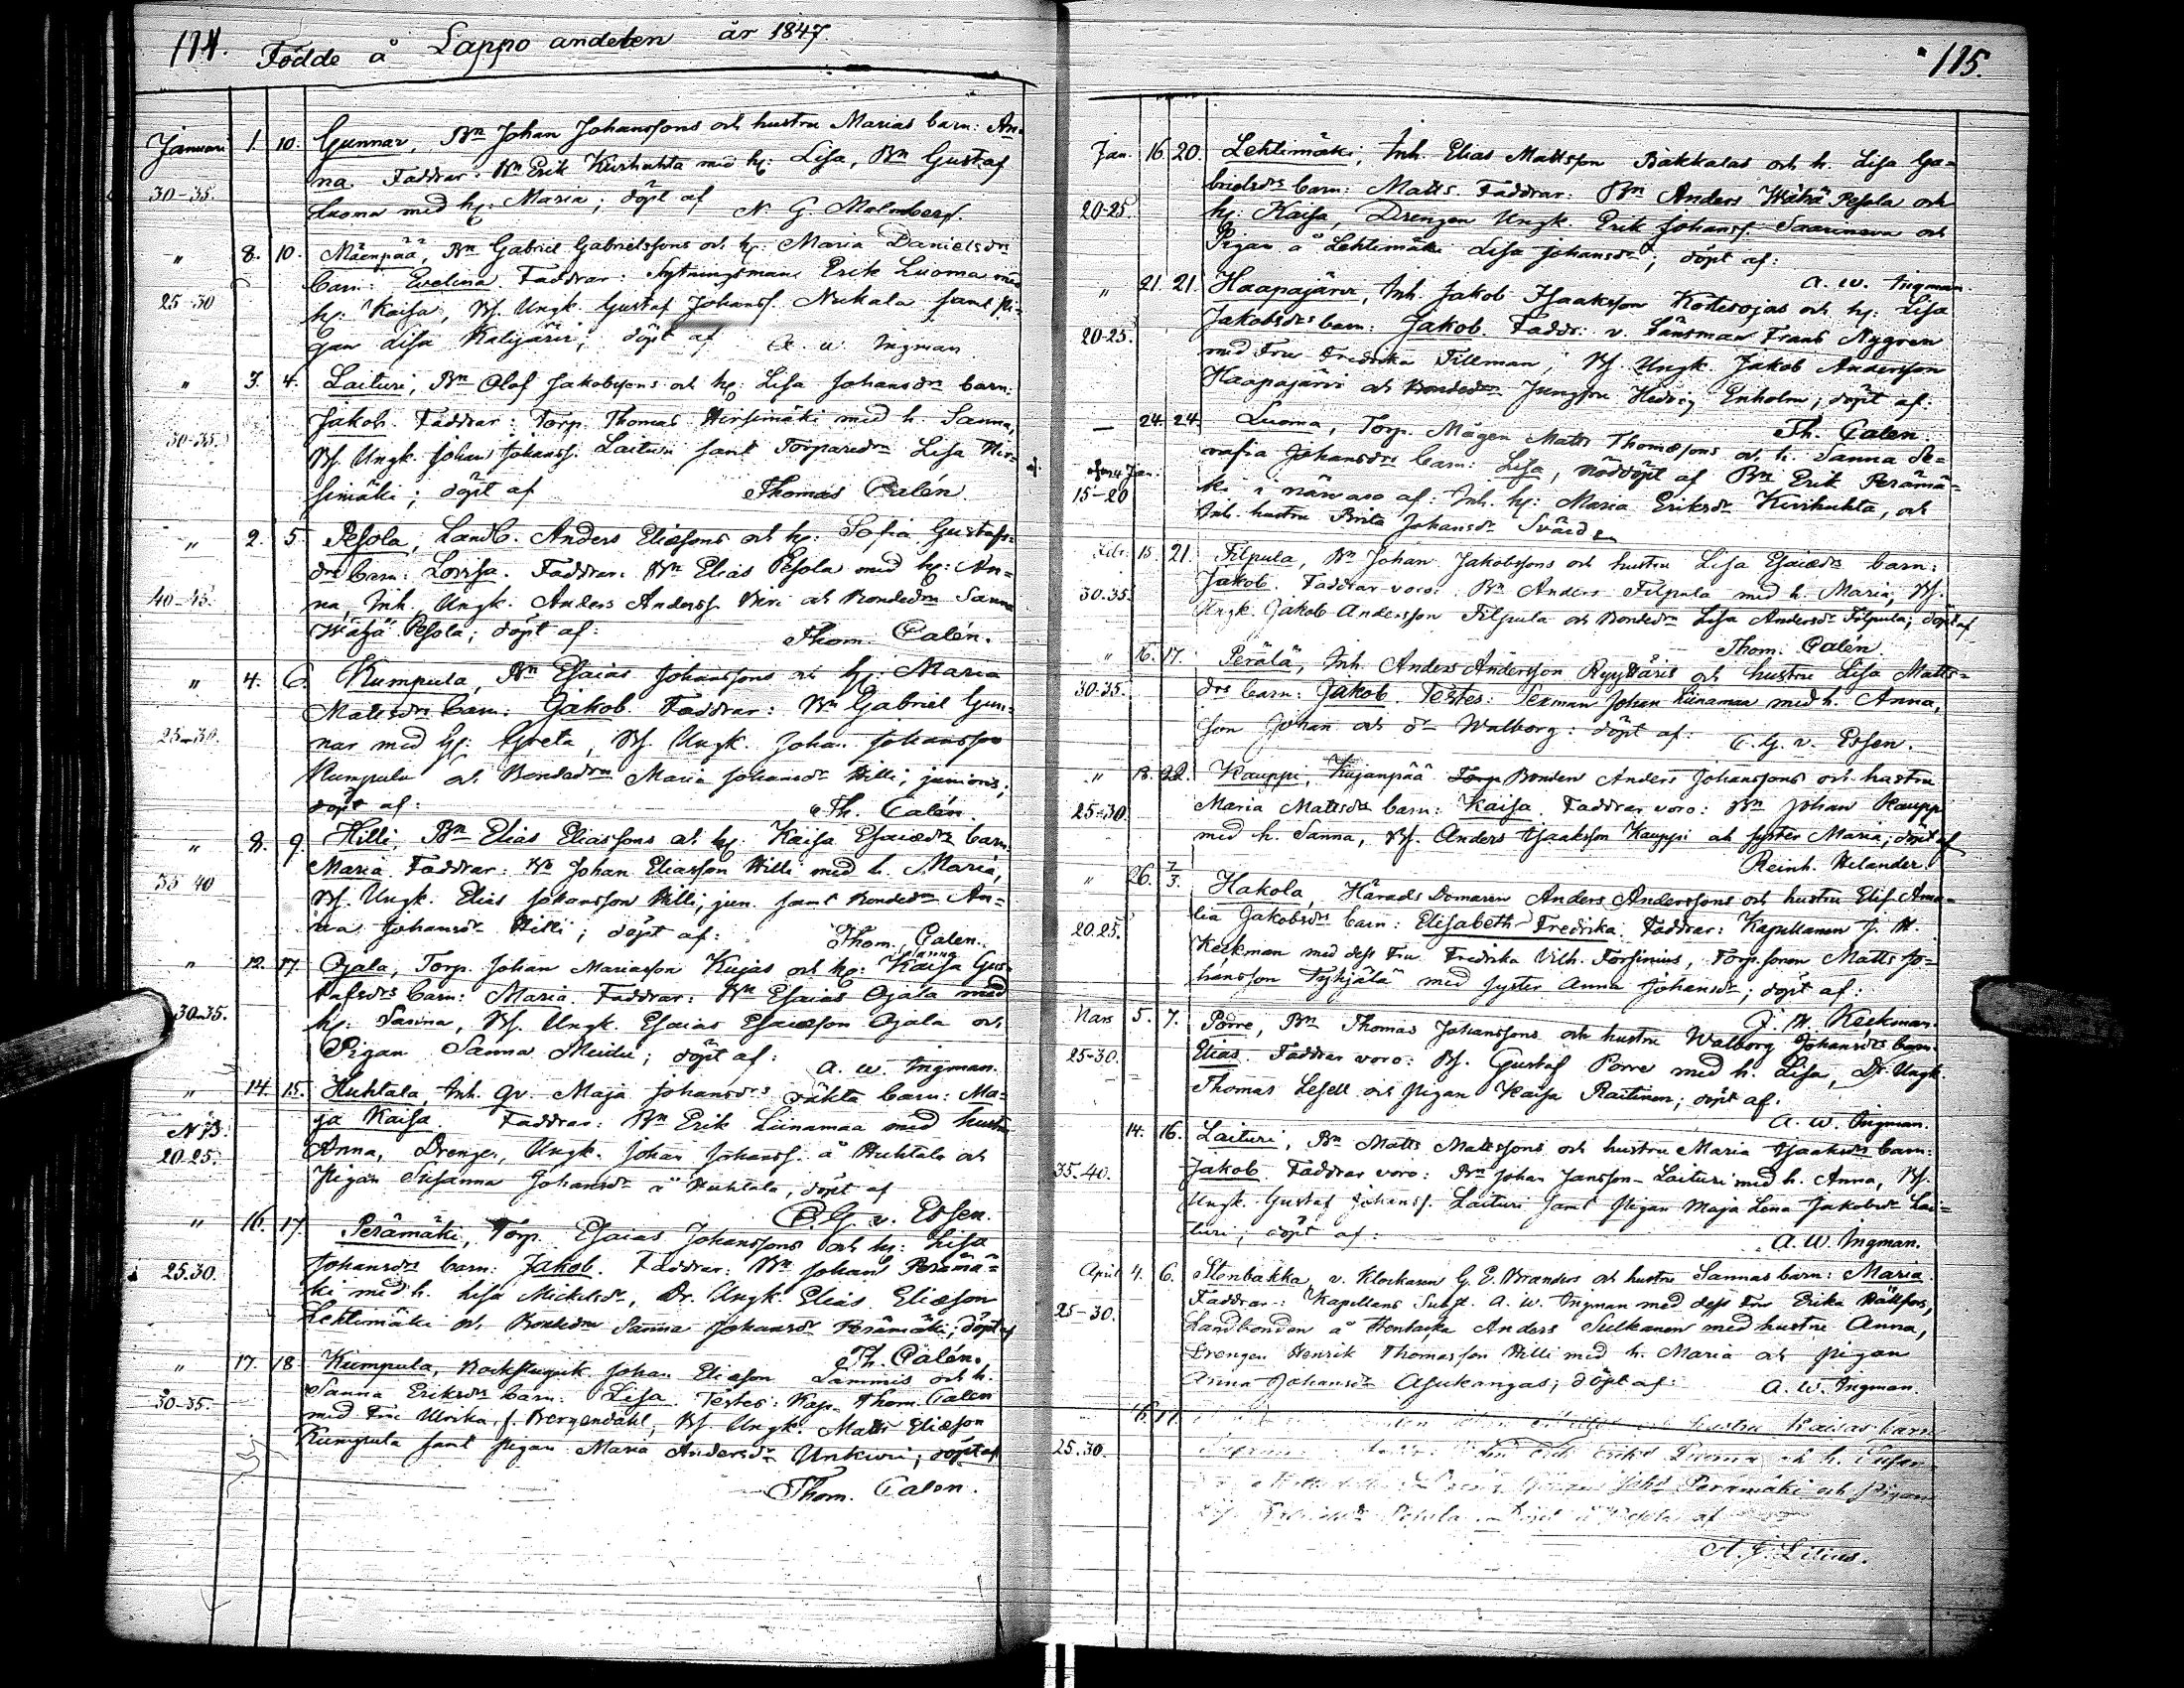 114. Födde å Lappo andelen år 1847
Januari 1. 10. Gunnar, Bn Johan Johanssons och hustru Marias barn: An=
na. Faddrar: Bn Erik Kuirhuhta med hu: Lisa, Bn Gustaf
30-35. Luoma med hu: Maria; döpt af N. G. Malmberg.
" 8. 10. Mäenpää, Bn Gabriel Gabrielssons och hu: Maria Danielsdrs
barn: Evelina. Faddrar: Sytningsman Erik Luoma med
25-30 hu: Kaisa, Bs. Ungk. Gustaf Johanss. Nukala samt pi=
gan Lisa Kalijärvi; döpt af A. W. Ingman.
" 3. 4. Laituri, Bn Olof Jakobssons och hu: Lisa Johansdrs barn:
Jakob. Faddrar: Torp. Thomas Hirsimäki med h. Sanna,
30-35. Bs. Ungk. Johan Johanss. Laituri samt Torparedr Lisa Hir=
simäki; döpt af Thomas Calén.
" 2. 5. Pesola, Landb. Anders Eliæsons och hu: Sofia Gustafs=
drs barn: Lovisa. Faddrar: Bn Elias Pesola med hu: An=
40-45. na, Inh. Ungk. Anders Anderss. och Bondedn Sanna
Wähä Pesola; döpt af: Thom. Calén.
" 4. 6. Kumpula, Bn Esaias Johanssons och hu: Maria
Mattsdrs barn: Jakob. Faddrar: Bn Gabriel Gun=
25-30. nar med hu: Greta, Bs. Ungk. Johan Johansson
Kumpula och Bondedrn Maria Johansdr Hilli, juniors;
döpt af: Th. Calén.
" 8. 9. Hilli, Bn Elias Eliassons och hu: Kaisa Esaiædrs barn:
Maria. Faddrar: Bn Johan Eliasson Hilli med h. Maria,
35-40 Bs. Ungk. Elias Johansson Hilli, jun. samt Bondedn An=
na Johansdr Hilli; döpt af: Thom. Calen.
" 12. 17. Ojala, Torp. Johan Mariasson Kujas och hu: Kaisa Gus=
tafsdrs barn: Maria. Faddrar: Bn Esaias Ojala med
30-35. hu: Sanna, Bs. Ungk. Esaias Esaiæson Ojala och
Pigan Sanna; döpt af: A. W. Ingman.
" 14. 15. Huhtala, Inh. Qv. Maja Johansdrs oäkta barn: Ma=
NB. ja Kaisa. Faddrar: Bn Erik Liinamaa med hustru
20-25. Anna, Drengen, Ungk. Johan Johanss. å Huhtala och
Pigan Susanna Johansdr å Huhtala, döpt af
C. G. v. Essen.
" 16. 17. Perämäki, Torp. Esaias Johanssons och hu: Lisa
Johansdrs barn: Jakob. Faddrar: Bn Johan Perämä=
25.30. ki med h. Lisa Mickelsdr, Dr. Ungk. Elias Eliæson
Lehtimäki och Bondedrn Sanna Johansdr Perämäki; döpt af
Th. Calén.
" 17. 18. Kumpula, Johan Eliæson Lammis och h.
Sanna Eriksdrs barn: Lisa. Testes: Kap. Thom. Calen
30-35. med Fru Ulrika, f. Bergendahl, Bs. Ungk. Matts Eliæson
Kumpula samt pigan Maria Andersdr Unkuri; döpt af
Thom. Calen.
115.
Jan. 16. 20. Lehtimäki, Inh. Elias Mattsson Bakkalas och h. Lisa Ga=
brielsdrs barn: Matts. Faddrar: Bn Anders Wähä Pesola och
20-25. hu: Kaisa, Drengen Ungk. Erik Johanss. Saarinen och
Pigan å Lehtimäki Lisa Johansdr; döpt af:
A. W. Ingman.
" 21. 21. Haapajärvi, Inh. Jakob Isaaksson Koiterojas och hu: Lisa
Jakobsdrs barn: Jakob. Faddr: v. Länsman Frans Nygren
20-25. med Fru Fredrika Tillman, Bs. Ungk. Jakob Andersson
Haapajärvi och Jungfru Hedvig Enholm; döpt af:
Th. Calen.
— 24. 24. Luoma, Torp. Mågen Matts Thomæsons och h. Sanna Se=
rafia Johansdrs barn: Lisa, nöddöpt af Bn Erik Perämä=
15-20 ki i närvaro af: Inh. hu: Maria Eriksdr Kuirhuhta, och
Inh. hustru Brita Johansdr Svärd
Febr. 15. 21. Filpula, Bn Johan Jakobssons och hustru Lisa Esaiædrs barn:
Jakob. Faddrar voro: Bn Anders Filpula med h. Maria, Bs.
30.35. Ungk. Jakob Andersson Filpula och Bondedn Lisa Andersdr Filpula; döpt af
Thom. Calén.
" 16. 17. Perälä, Inh. Anders Andersson och hustru Lisa Matts=
drs barn: Jakob. Testes: Sexman Johan Liinamaa med h. Anna,
30-35. son Johan och dr Walborg: döpt af: C. G. v. Essen.
" 18. 22. Kauppi, Kujanpää Bonden Anders Johanssons och hustru
Maria Mattsdrs barn: Kaisa. Faddrar voro: Bn Johan Kauppi
25-30. med h. Sanna, Bs. Anders Isaaksson Kauppi och syster Maria; döpt af
Reinh. Helander.
" 26. 7/3. Hakola, Härads Domaren Anders Anderssons och hustru Elis. Ama=
lia Jakobsdrs barn: Elisabeth Fredrika. Faddrar: Kapellanen J. H.
20.25. Keckman med dess Fru Fredrika Vilh. Forsinius, Torp. sonen Matts Jo=
hansson Tyhjälä med syster Anna Johansdr; döpt af:
J. H. Keckman.
Mars 5. 7. Porre, Bn Thomas Johanssons och hustru Walborg Johansdrs barn:
25-30. Elias. Faddrar voro: Bs. Gustaf Porre med h. Lisa, Dr. Ungk.
Thomas Lesell och Pigan Kaisa Raitinen; döpt af:
A. W. Ingman.
14. 16. Laituri, Bn Matts Mattssons och hustru Maria Isaaksdrs barn:
35-40. Jakob. Faddrar voro: Bn Johan Jansson-Laituri med h. Anna, Bs.
Ungk. Gustaf Johanss. Laituri samt Pigan Maja Lena Jakobsdr Lai=
turi; döpt af: A. W. Ingman.
April 4. 6. Stenbakka, v. Klockaren G. E. Branders och hustru Sannas barn: Maria.
Faddrar: Kapellans Subst. A. W. Ingman med dess Fru Erika Hällfors,
25-30. Landbonden å Anders Sulkanen med hustru Anna,
Drengen Henrik Thomasson Hilli med h. Maria och pigan
Anna Johansdr Asukangas; döpt af: A. W. Ingman.
16. 17. hustru Kaisas barn
25.30. Luoma och h.
Perämäki och Pigan
Pesola. af
A. J. Lilius.